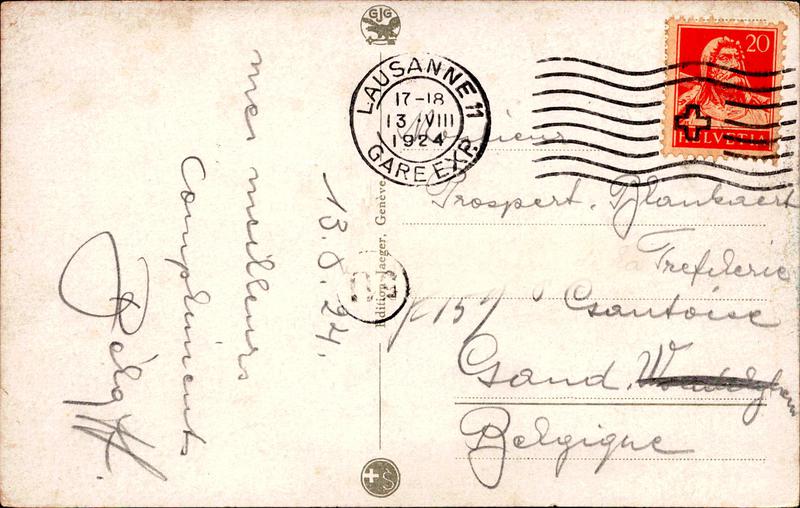 mes meilleurs
Compliments
13.8.24.
GJG
Edition Jaeger, Genève
S
LAUSANNE 11
17-18
13 VIII
1924
GARE EXP.
20
HELVETIA
Monsieur
Prospert. Blankaert
Trefilerie
Gantoise
Gand.
Belgique